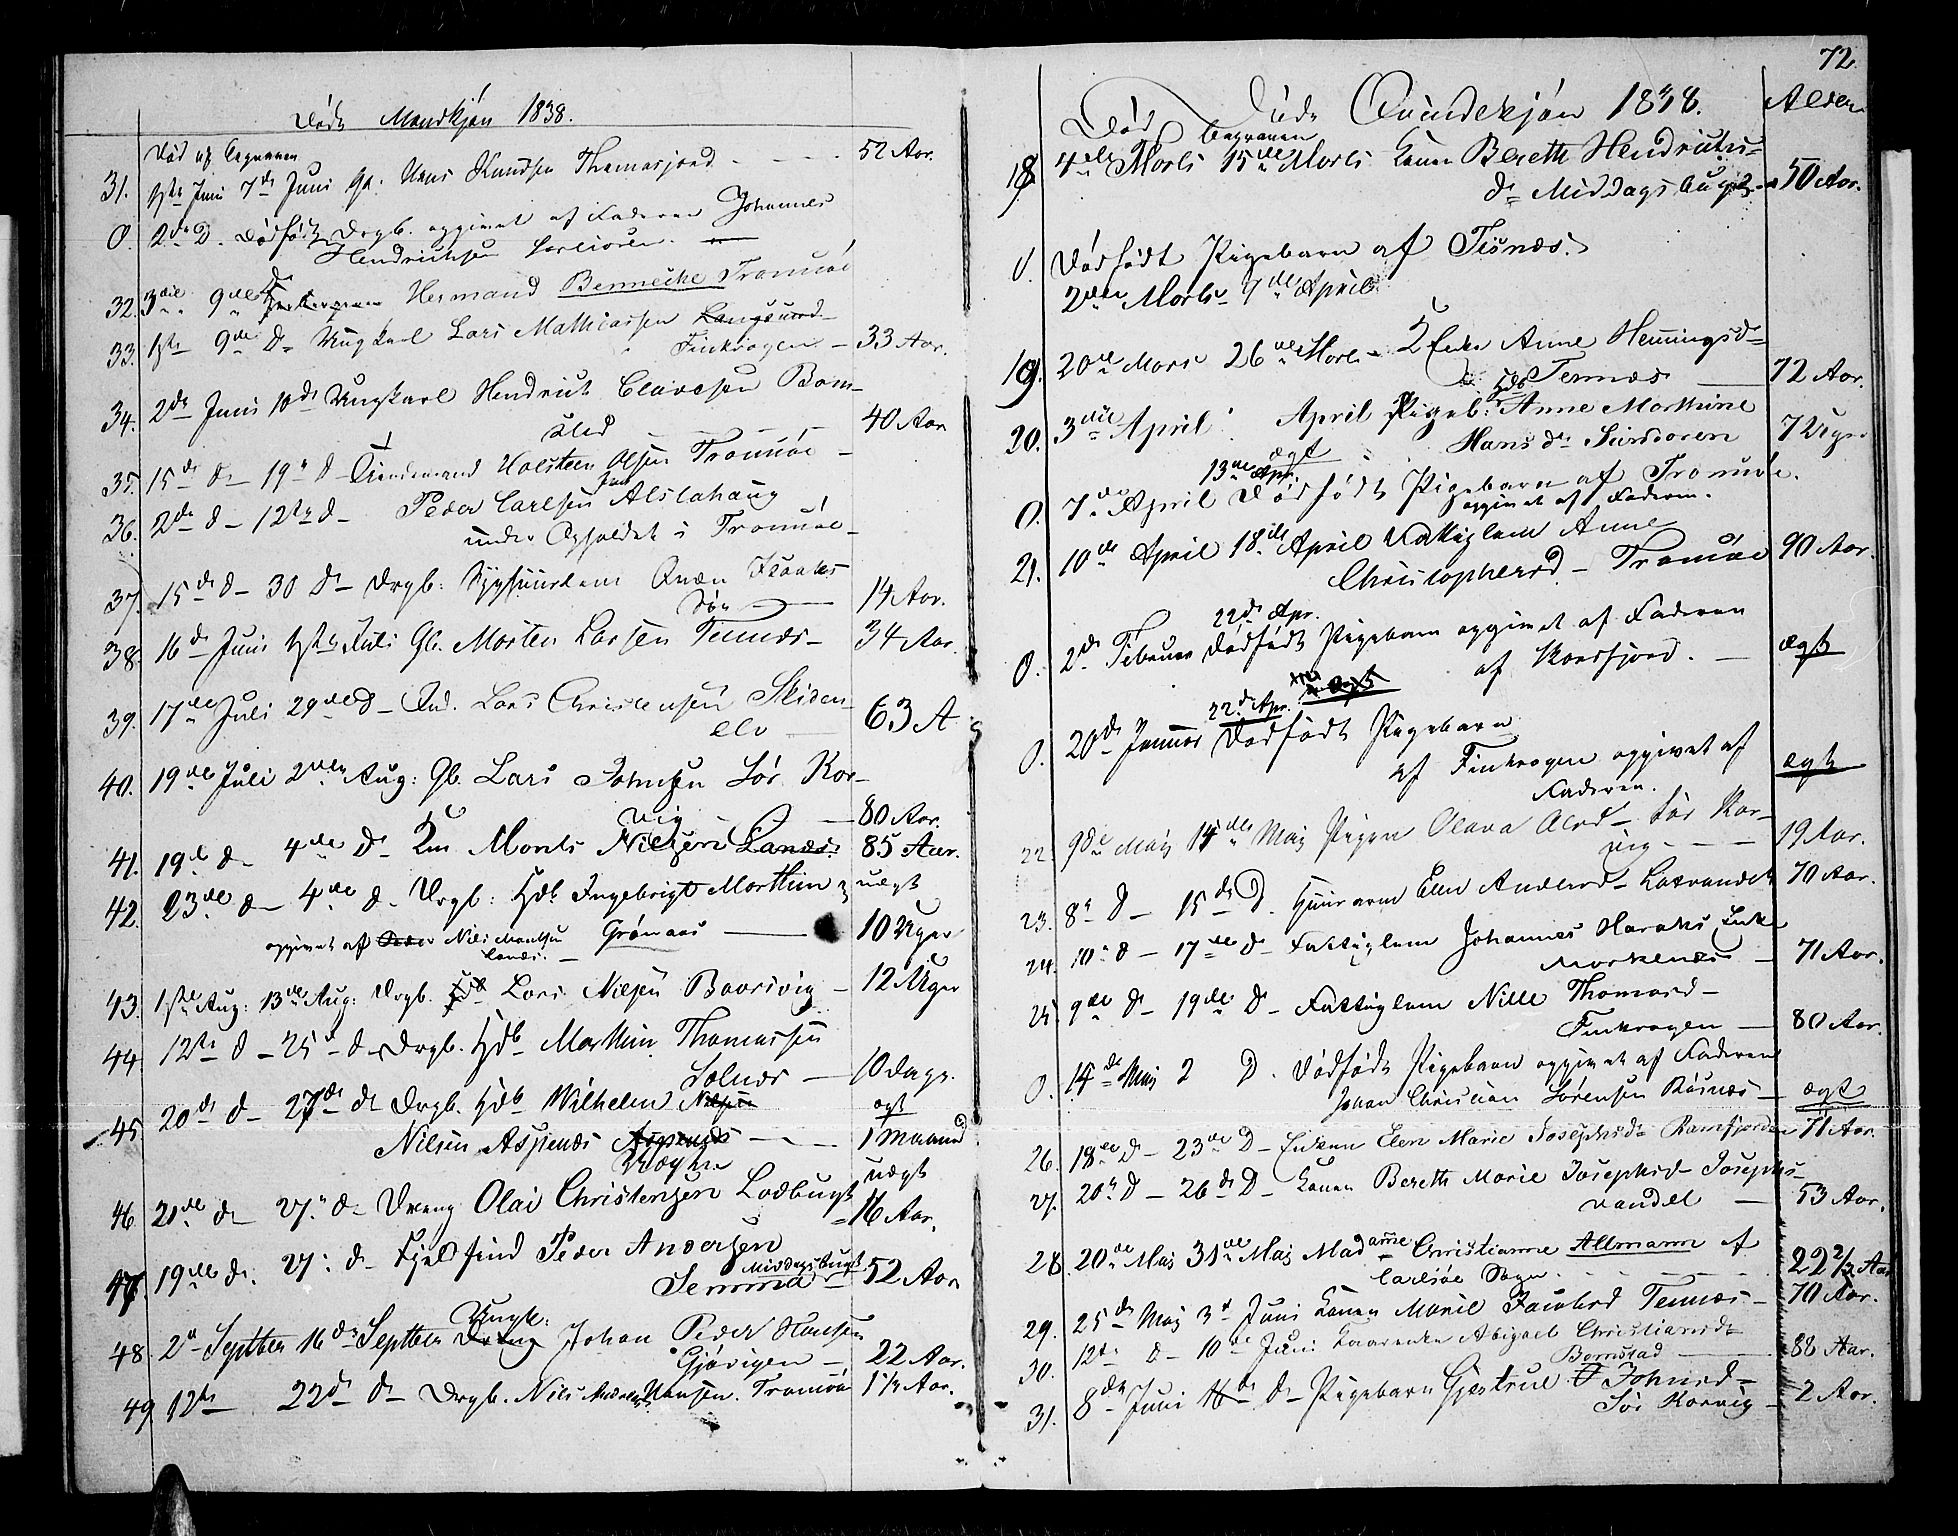 Døde Mandkjøn 1838.
Død og Begraven
31. 1ste Juni 7de Juni Gl. Hans Knudsen Thomasjord - - - - 52 Aar.
0. 2de D. Dødfødt Drgb. opgivet af Faderen Johannes
Hendrichsen
32. 3die 9de Hermand Bennecke Tromsøe
33. 1ste 9de D. Ungkarl Lars Mathiassen Langsund
Finkrogen - 33 Aar.
34. 2de Juni 10de Ungkarl Hendrich Clausen Bom-
stad - - - 40 Aar
35. 15de D - 19de D - Holsteen Olsen Tromsøe -
36. 2de D - 12te D - Peder Carlsen Alstahaug
under Opholdet i Tromsøe -
37. 15de D - 30 D - Drgb. Qvæn Isaaks
Søn - 14 Aar.
38. 16de Juni 1ste Juli Gl. Morten Larsen Tennæs - 34 Aar.
39. 17de Juli 29de D - Ind. Lars Christensen Skiden-
elv - 63 A
40. 19de Juli 2den Aug: Gl. Lars Johnsen Sør Kor-
vig - - 80 Aar.
41. 19de D - 4de D - Monts Nielsen Lanæs. 85 Aar.
42. 23de D - 4de D - Drgb: Hdb. Ingebrigt Marthin uægt
opgivet af Peder Niels Montsen Grønaas - 10 Uger
Lanæs. -
43. 1ste Aug: 13de Aug: Drgb. Hdb Lars Nielsen Baarsvig - 12 Uger
44. 12te D - 25de D - Drgb. Hdb Marthin Thomassen
Solnæs - 10 dage.
45. 20de D - 27de D - Drgb. Hdb Wilhelm Nilsen ægt
Nilsen Aspenæs Aspenæs - - - 1 Maaned
uægt
46. 21de D - 27. D - Dreng Olai Christensen Lodbugt - 16 Aar.
47. 19de D. 27: D - Fjeldfind Peder Andersen
Semma Middagsbugt - 52 Aar
48. 2de Septber 16de Septber Dreng Ungk: Johan Peder Hansen
Gjøvigen - 22 Aar.
49. 12te 22de D - Drgb. Nils Andreas Hansen. Tromsøe 1½ Aar.
72.
Døde Qvindekjøn 1838. Alder
Død Begraven
18. 4de Marts 15de Marts Konen Bereth Hendrichs-
dr Middagsbugt - 50 Aar.
0 Dødfødt Pigebarn af Tisnæs.
2den Marts 7de April
19. 20de Mars 26de Marts - Enke Anne Henningsd-
Tennæs - 72 Aar.
20. 3die April April Pigeb: Hdb Anne Marthine
Hansdr 7 Uger
ægt
13de Apr.
0. 7de April Dødfødt Pigebarn af Tromsøe.
opgivet af Faderen.
21. 10de April 18de April Fattiglem Anne
Christophersd - Tromsøe 90 Aar.
22de Apr.
0. 2de Februar Dødfødt Pigebarn opgivet af Faderen
af Kaarsfjord. - ægt
22de Apr.
0. 20de Januar Dødfødt Pigebarn
af Finkrogen opgivet af ægt
Faderen.
22. 9de Maj 15de Maj Pigen Olava Olsd - Sør Kor-
vig - - - 19 Aar.
23. 8de D - 15de D. Huusarm Elen Andersd - Laxvandet 70 Aar.
24. 10de D - 17de D - Fattiglem Johannes Haraks Enke
Morkenæs - 71 Aar.
25. 9de D - 19de D - Fattiglem Nille Thomasd -
Finkrogen - 80 Aar.
0. 14de Maj 2 D. Dødfødt Pigebarn opgivet af Faderen
Johan Christian Sørensen Røsnæs - ægt
26. 18de D - 23de D - Enken Elen Marie Josephsdr Ramfjorden 71 Aar.
27. 20de D - 26de D - Konen Bereth Marie Josephsd - Josephs-
vandet - 53 Aar.
28. 20de Maj 31de Maj Madame Christianne Allmann af
Carlsøe Sogn. - - - 22 2/3 Aar
29. 25de Maj 3de Juni Konen Marie Jacobsd Tennæs - 70 Aar.
30. 12te D - 10de Juni Abigael Christiansdr
Bomstad - 88 Aar.
31. 8de Juni 16de D - Pigebarn Gjertrue Johnsd -
Sør Korvig - 2 Aar.